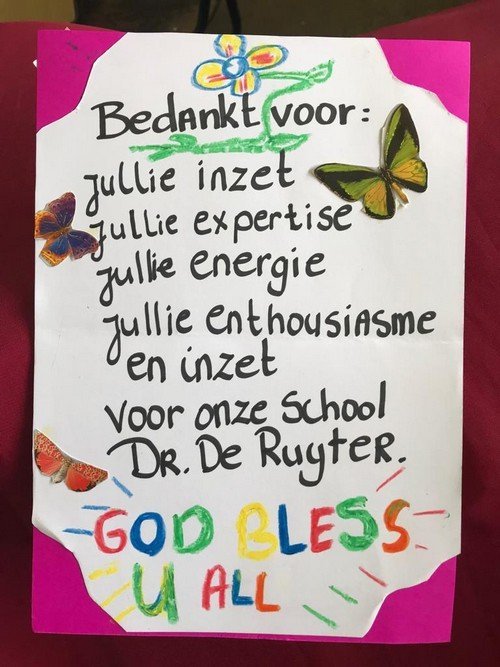 Bedankt voor:
jullie inzet
jullie expertise
jullie energie
jullie enthousiasme
en inzet
voor onze School
DR. De Ruyter.
GOD BLESS
U ALL